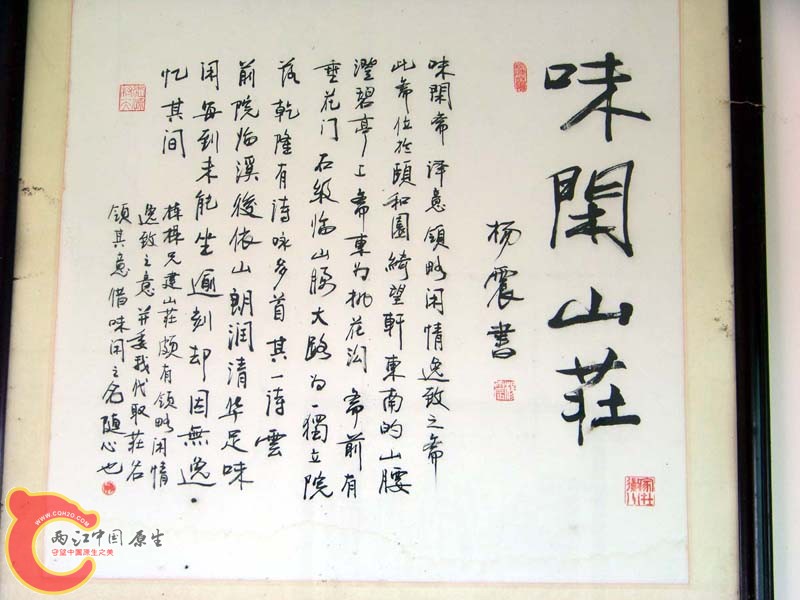 味閑山莊
杨震书
味閑斋 译意领略闲情逸致之斋
此斋位於颐和園綺望軒東南的山腰
澄碧亭上斋東为桃花沟 斋前有
垂花门 石级临山腰大路为一獨立院
落 乾隆有诗咏多首 其一诗雲
前院临溪後依山 朗润清华足味
闲 每到未能坐逾刻 却因無逸
忆其间
栋樑兄建山莊颇有领略闲情
逸致之意 并委我代取莊名
领其意借味闲之名随心也
WWW.CQH2O.COM
两江中国 原生
守望中国原生之美